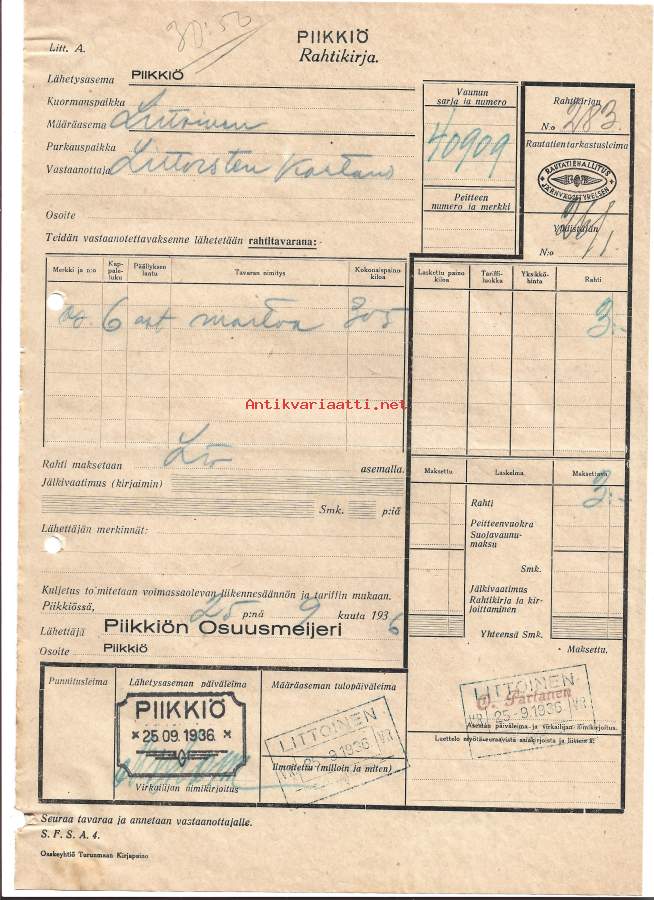 30:50
PIIKKIÖ
Litt. A.
Rahtikirja.
Lähetysasema PIIKKIÖ
Kuormauspaikka
Määräasema Littoinen
Purkauspaikka
Vastaanottaja Littoisten Kartano
Osoite
Teidän vastaanotettavaksenne lähetetään rahtitavarana:
Vaunun
sarja ja numero
40909
Peitteen
numero ja merkki
Rahtikirjan
N:o 283.
Rautatientarkastusleima
RAUTATIEHALLITUS
JÄRNVÄGSSTYRELSEN
Yhdistäjän
N:o
Merkki ja n:o Kappale-luku Päällyksen laatu Tavaran nimitys Kokonaispaino kiloa
6 ast maitoa 305
Laskettu paino kiloa Tariffi-luokka Yksikkö-hinta Rahti
3:-
Rahti maksetaan asemalla.
Jälkivaatimus (kirjaimin)
Smk. p:iä
Lähettäjän merkinnät:
Maksettu Laskelma Maksettava
Rahti 3:-
Peitteenvuokra
Suojavaunu-
maksu
Smk.
Jälkivaatimus
Rahtikirja ja kir-
joittaminen
Yhteensä Smk.
Maksettu.
Kuljetus toimitetaan voimassaolevan liikennesäännön ja tariffin mukaan.
Piikkiössä, 25 p:nä 9 kuuta 1936
Lähettäjä Piikkiön Osuusmeijeri
Osoite Piikkiö
Punnitusleima
Lähetysaseman päiväleima
PIIKKIÖ
×25.09.1936×
Virkailijan nimikirjoitus
Määräaseman tulopäiväleima
LITTOINEN
VR 25.9.1936 VR
Ilmoitettu (milloin ja miten)
LITTOINEN
Partanen
VR 25.-9.1936 VR
Aseman päiväleima ja virkailijan nimikirjoitus.
Luettelo myötäseuraavista asiakirjoista ja liitteistä:
Antikvariaatti.net
Seuraa tavaraa ja annetaan vastaanottajalle.
S. F. S. A. 4.
Osakeyhtiö Turunmaan Kirjapaino